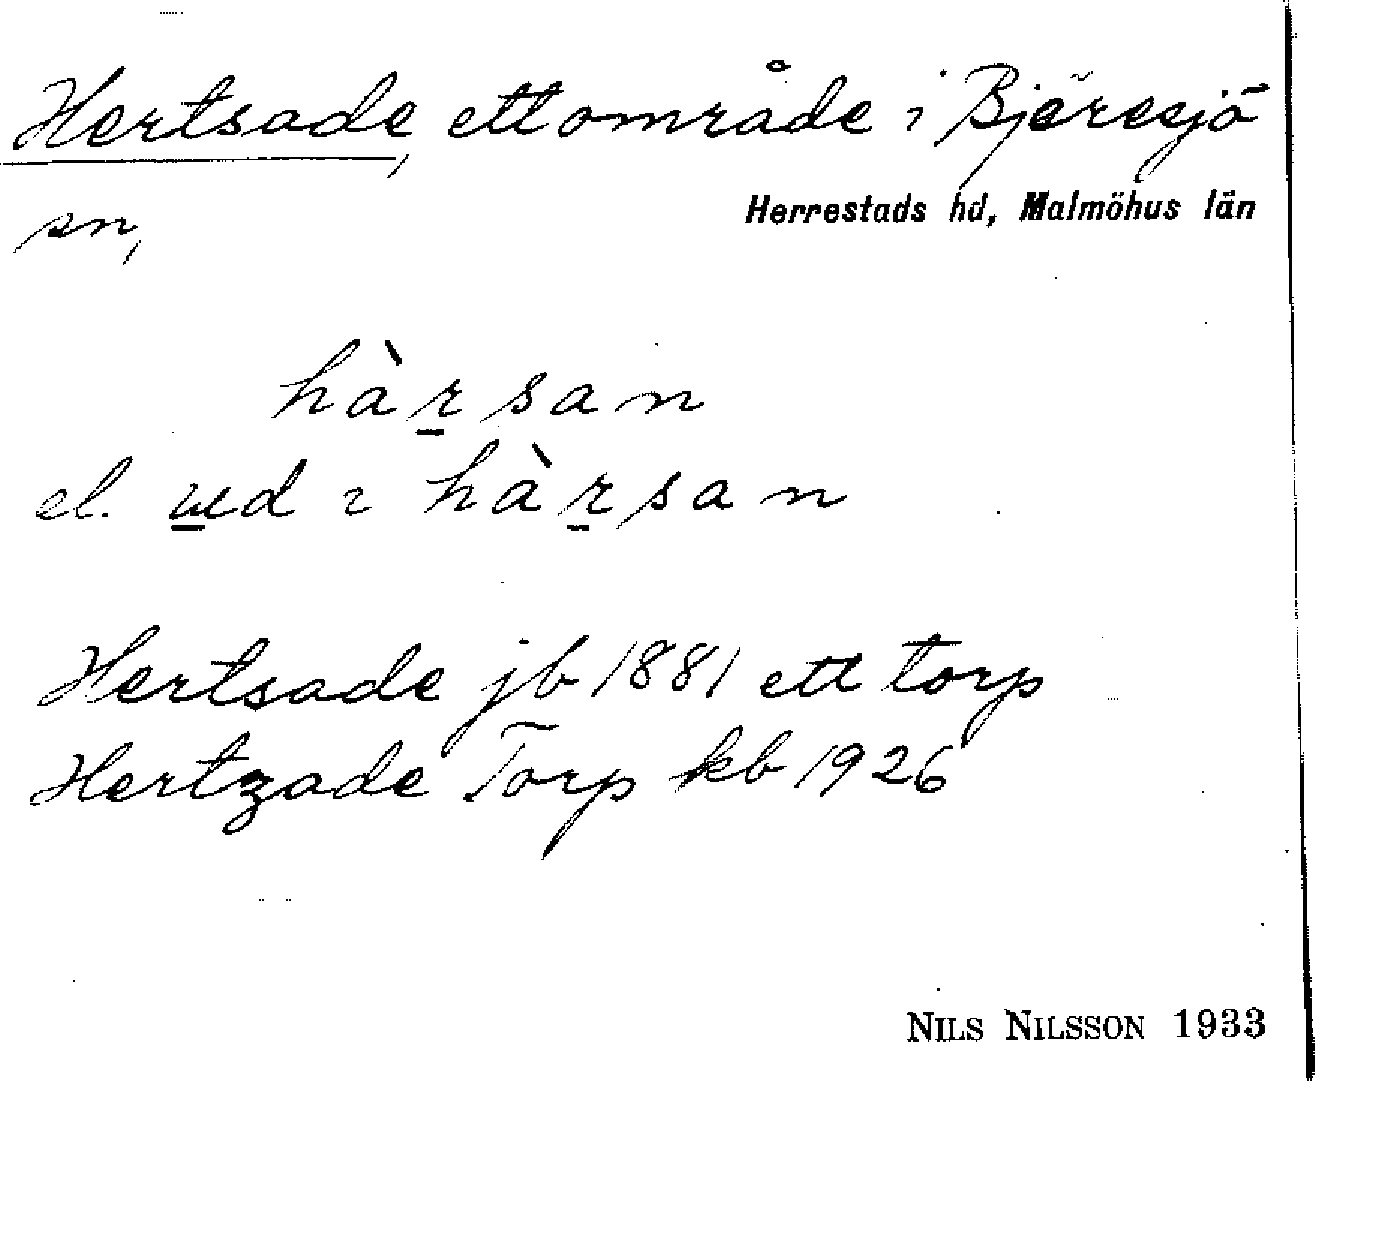 Hertsade, ett område i Bjäresjö
sn,
Herrestads hd, Malmöhus län
hàr̲san
el. u̲d i hàr̲san
Hertsade jb 1881 ett torp
Hertzade Torp kb 1926
NILS NILSSON 1933